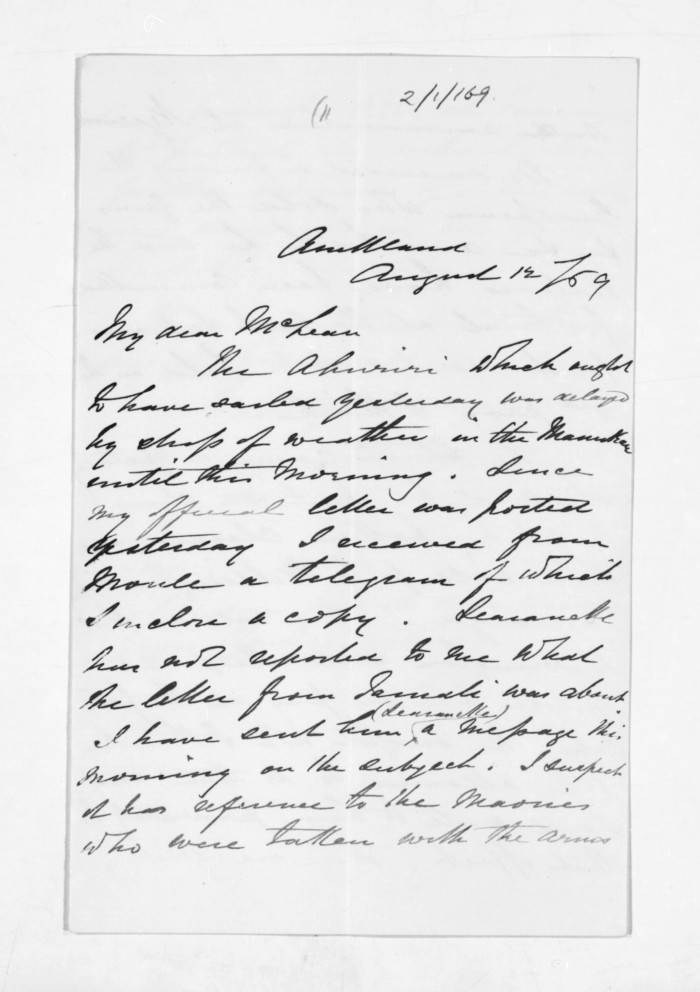 2/1/169.
(11
Auckland
August 12/69
My dear McLean
The Ahuriri which ought
to have sailed yesterday was delayed
by stress of weather in the Manukau
until this morning. Since
my official letter was posted
yesterday I received from
Moule a telegram of which
I inclose a copy. Searancke
has not reported to me what
the letter from Tamati was about
I have sent him (Searancke) a message this
morning on the subject. I suspect
it has reference to the Maories
who were taken with the arms